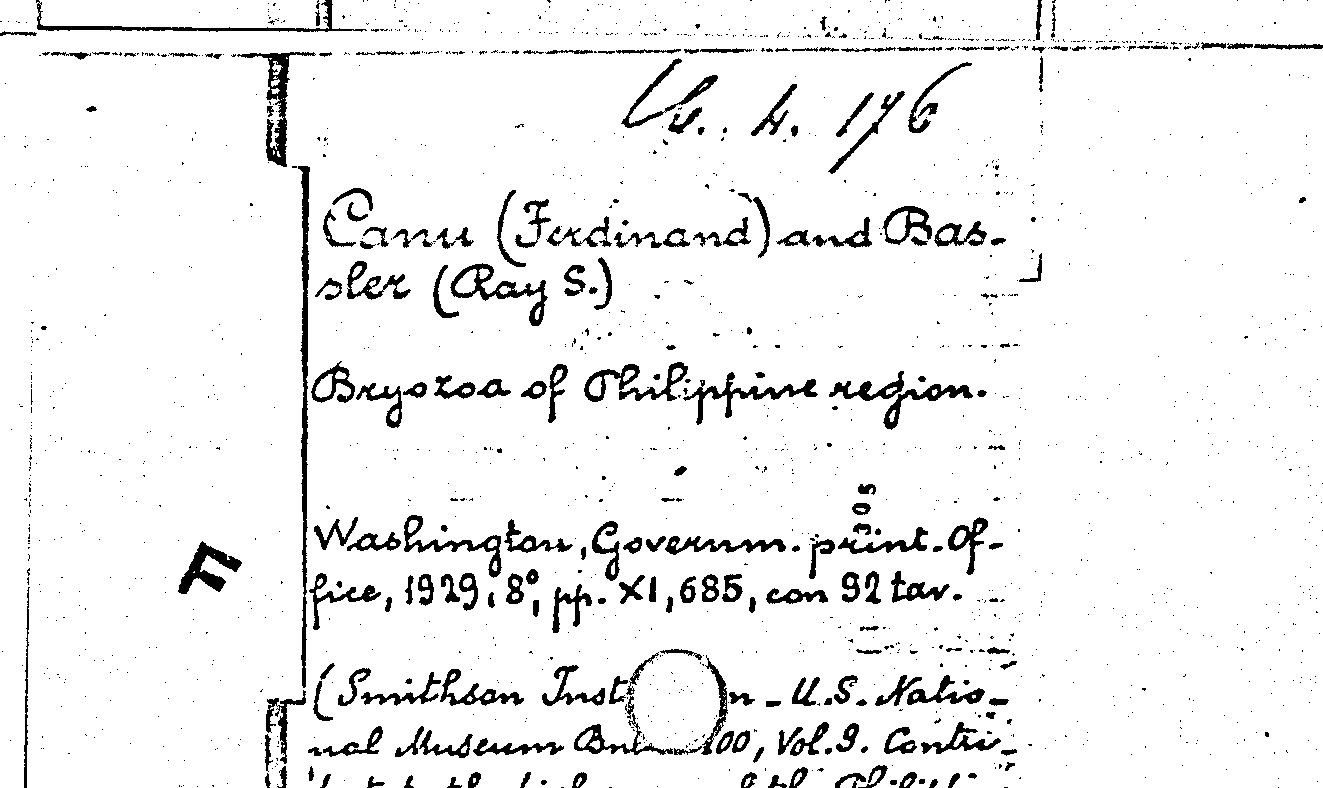 4. 176
Canu (Ferdinand) and Bas-
sler (Ray S.)
Bryozoa of Philippine region.
Washington, Governm. print. Of-
fice, 1929, 8°, pp. XI, 685, con 92 tav.
F
(Smithson Inst n - U.S. Natio-
nal Museum 100, Vol. 9. Contri-